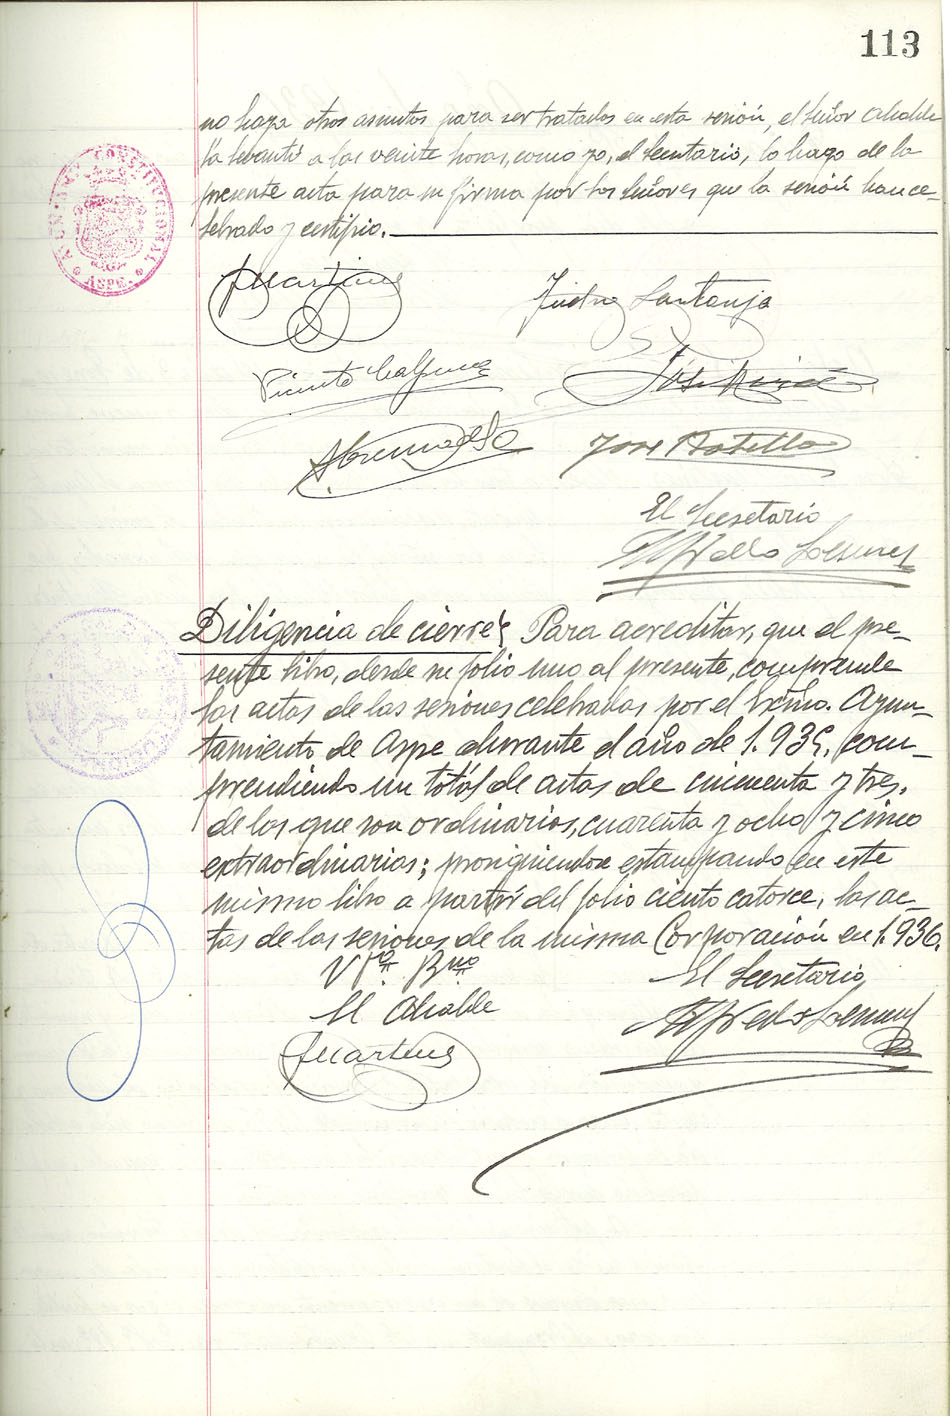 113
no haya otros asuntos para ser tratados en esta sesión, el señor Alcalde
la levantó a las veinte horas, como yo, el Secretario, lo hago de la
presente acta para su firma por los señores que la sesión han ce-
lebrado y certifico.
AYUNT. CONSTITUCIONAL
ASPE
Isidro Santonja
Vicente
José
José Botella
El Secretario
Alfredo
Diligencia de cierre: Para acreditar, que el pre-
sente libro, desde su folio uno al presente, comprende
las actas de las sesiones celebradas por el Excmo. Ayun-
tamiento de Aspe durante el año de 1.935, com-
prendiendo un totál de actas de cincuenta y tres,
de los que son ordinarios, cuarenta y ocho y cinco
extraordinarios; prosiguiendose estampando en este
mismo libro a partir del folio ciento catorce, las ac-
tas de las sesiones de la misma Corporación en 1.936.
Vº. Bno
El Secretario
El Alcalde
Alfredo
JMartínez